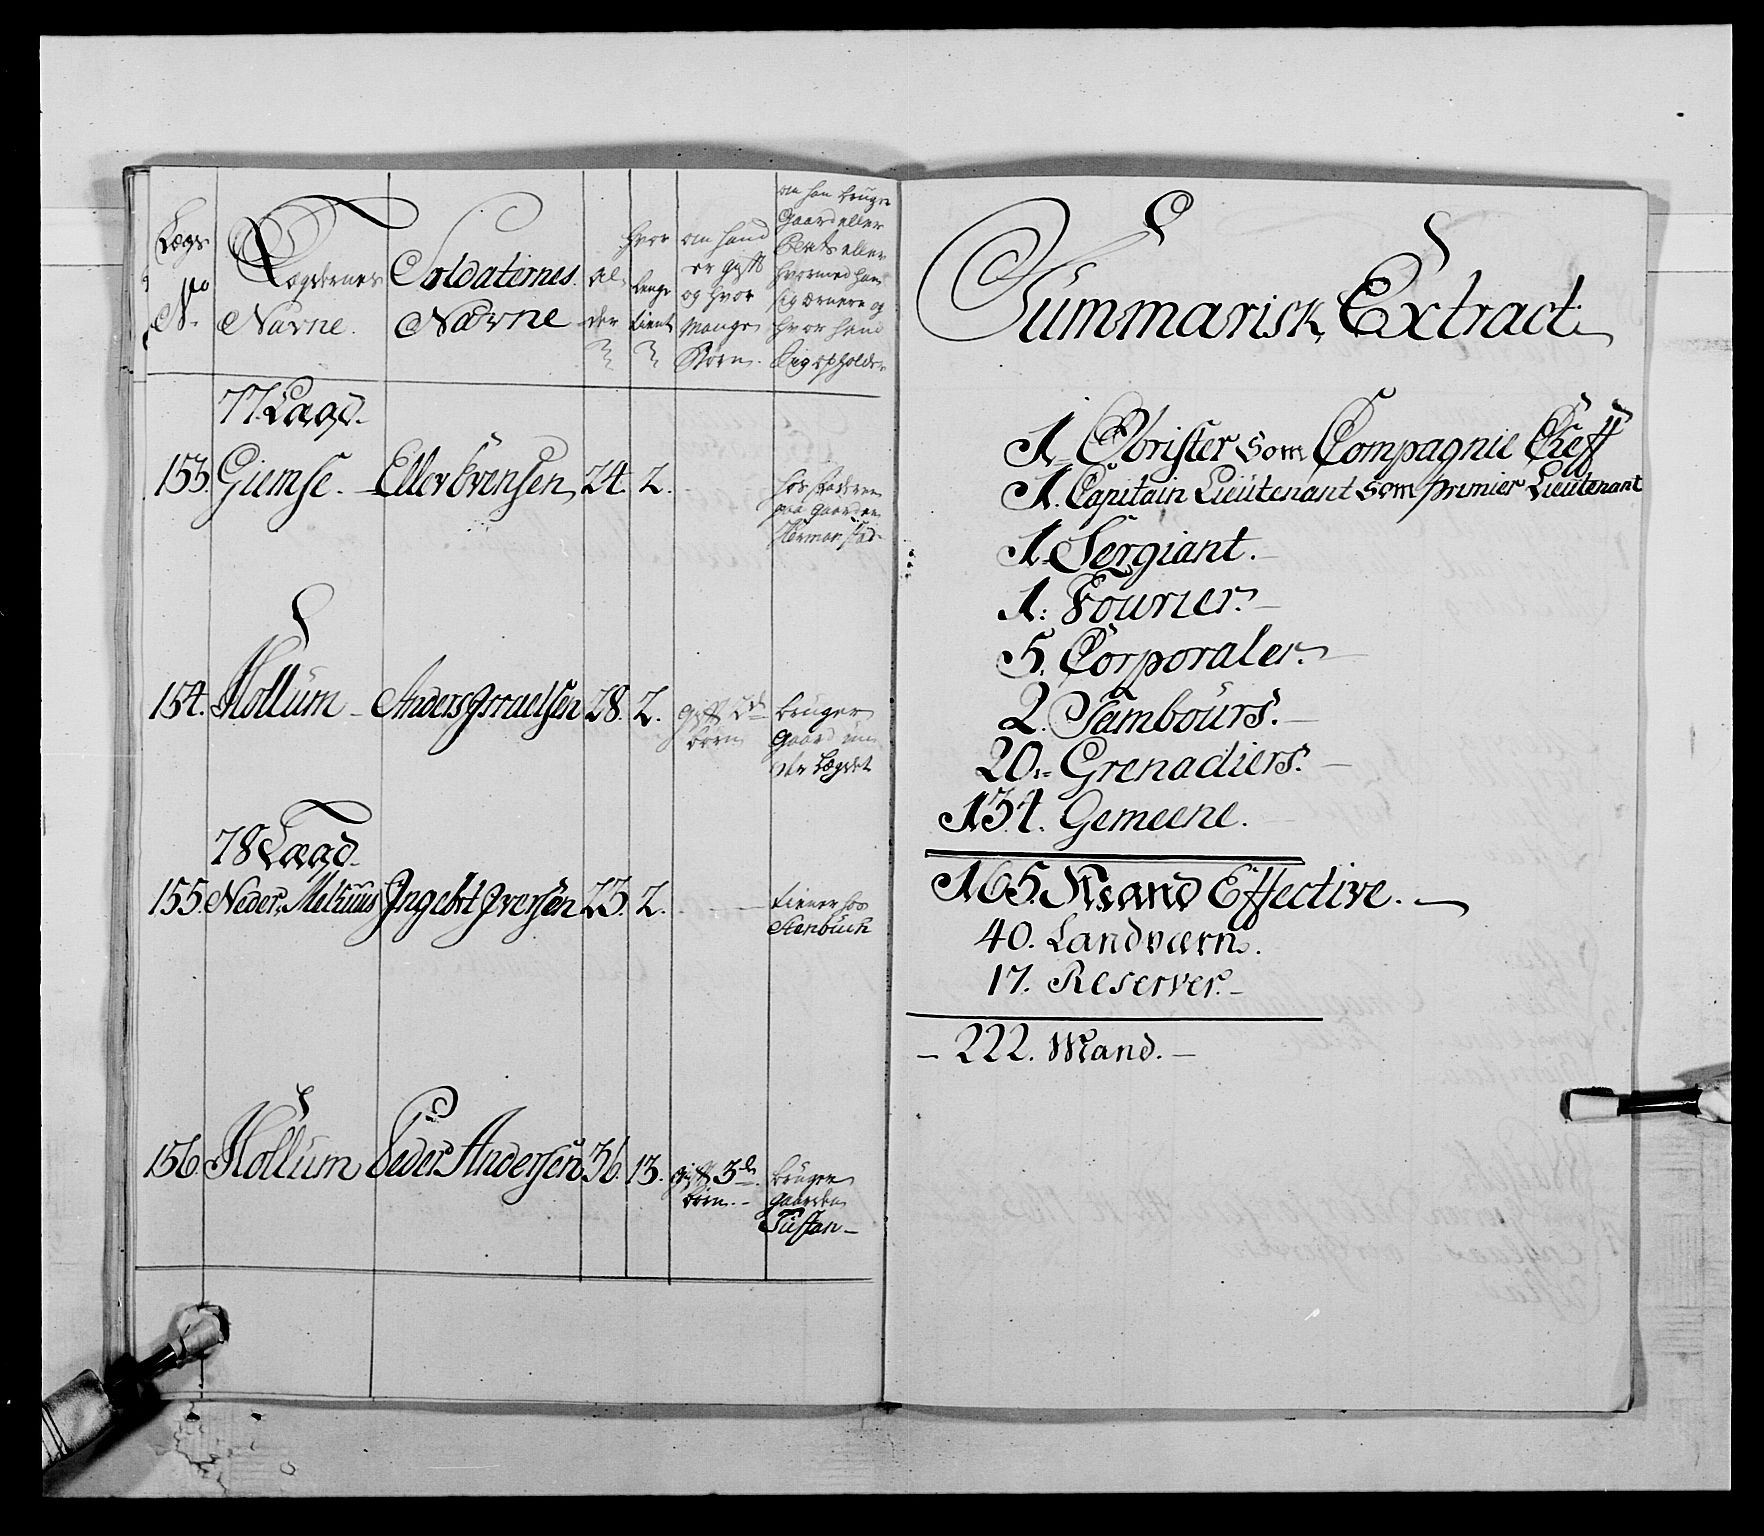 Lægs No
Lægdernes Navne.
Soldaternes Navne
al- der
hvor lenge tient
om hand er gift og hvor mange Børn.
om han bruger Gaard eller Plads eller hvormed han sig ernere og hvor hand sig opholder
77. Lægd.
153. Giemse. Eller Evensen 24. 2.
hos Faderen
paa Gaarden
154. Hollum Anders Israelsen 28. 2. gift 2de børn
bruger
Gaard un-
der Lægdet
78 Lægd
155. Neder Ingebt Iversen 23. 2.
tiener hos
Stenbuch
156. Hollum Peder Andersen 36. 13. gift 3de børn
bruger
gaarden
Tüftan
Summarisk Extract
1. Obrister som Compagnie Cheff
1. Capitain Lieutenant som premier Lieutenant
1. Sergiant.
1. Fourier.
5. Corporaler.
2. Tambours.
20. Grenadiers.
134. Gemeene.
165. Mand Effective.
40. Landværn.
17. Reserver.
222. Mand.